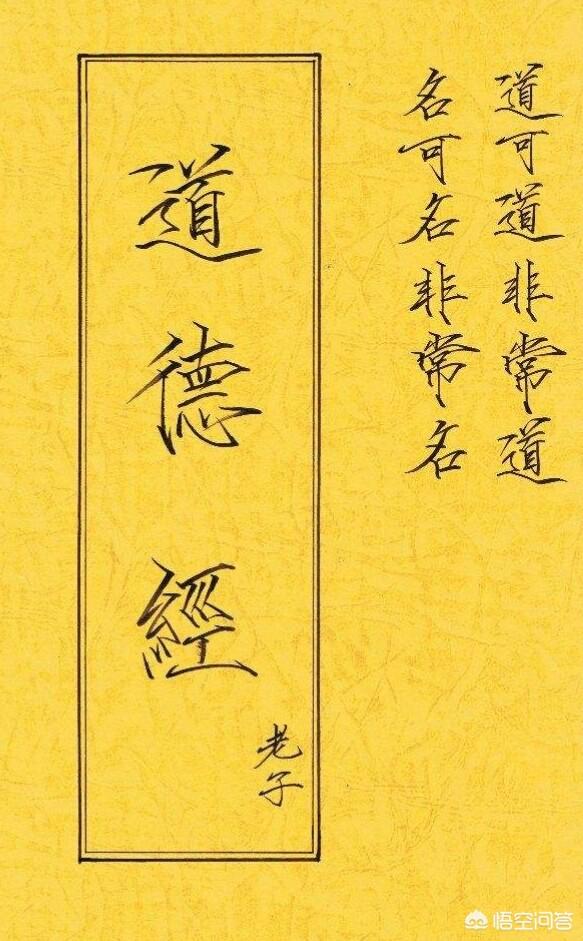 道可道非常道
名可名非常名
道德經
老子
悟空问答